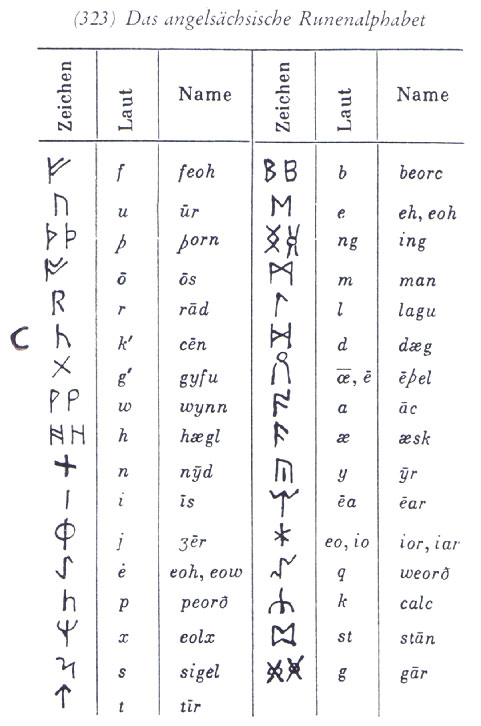 (323) Das angelsächsische Runenalphabet
Zeichen Laut Name Zeichen Laut Name
f feoh b beorc
u ūr e eh, eoh
þ þorn ng ing
ō ōs m man
r rād l lagu
C k′ cēn d dæg
g′ gyfu œ̄, ē ēþel
w wynn a āc
h hægl æ æsk
n nȳd y ȳr
i īs ēa ēar
j ʒēr eo, io ior, iar
ė eoh, eow q weorð
p peorð k calc
x eolx st stān
s sigel g gār
t tīr